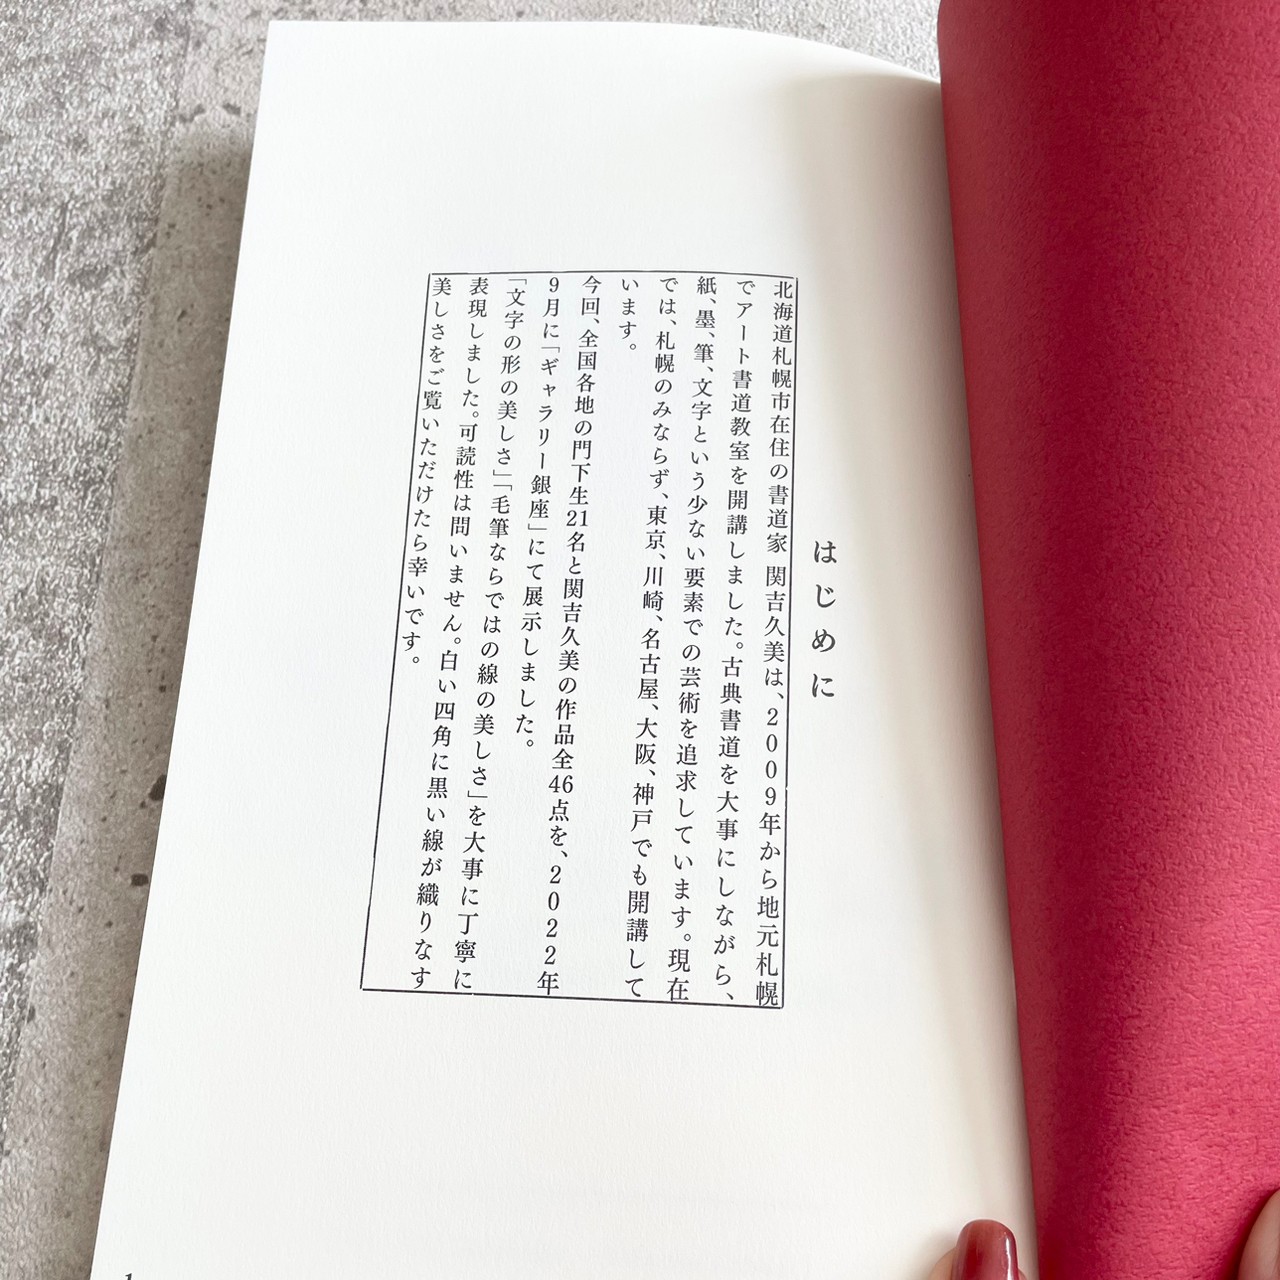 はじめに
北海道札幌市在住の書道家 関吉久美は、2009年から地元札幌
でアート書道教室を開講しました。古典書道を大事にしながら、
紙、墨、筆、文字という少ない要素での芸術を追求しています。現在
では、札幌のみならず、東京、川崎、名古屋、大阪、神戸でも開講して
います。
今回、全国各地の門下生21名と関吉久美の作品全46点を、2022年
9月に「ギャラリー銀座」にて展示しました。
「文字の形の美しさ」「毛筆ならではの線の美しさ」を大事に丁寧に
表現しました。可読性は問いません。白い四角に黒い線が織りなす
美しさをご覧いただけたら幸いです。
1